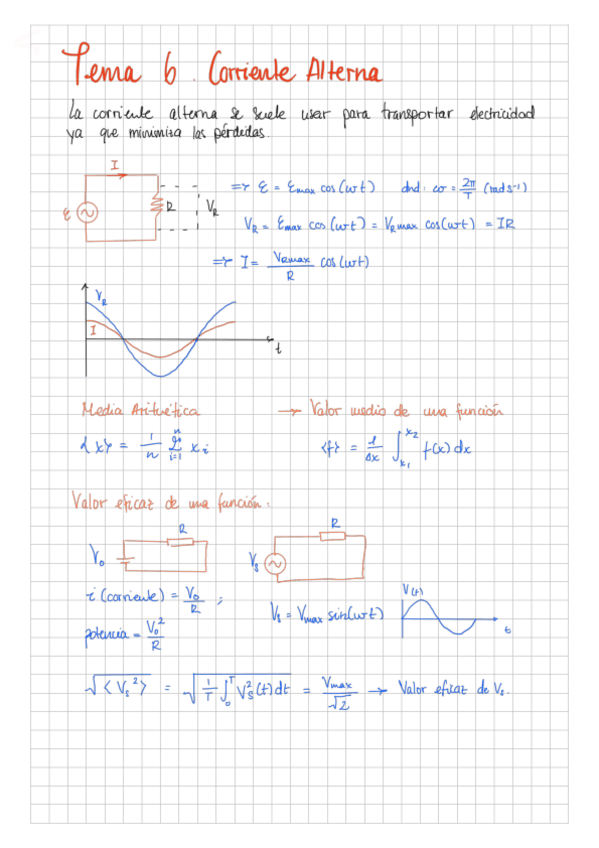 Tema 6. Corriente Alterna
La corriente alterna se suele usar para transportar electricidad
ya que minimiza las pérdidas.
I
ε R V_R
=> ε = ε_max cos(ωt) dnd: ω = 2π/T (rad s⁻¹)
V_R = ε_max cos(ωt) = V_Rmax cos(ωt) = IR
=> I = V_Rmax/R cos(ωt)
V_R
I
t
Media Aritmética → Valor medio de una función
<x> = 1/n Σ_{i=1}^{n} x_i <f> = 1/Δx ∫_{x₁}^{x₂} f(x) dx
Valor eficaz de una función:
R R
V₀ V_s
i (corriente) = V₀/R ;
V_s = V_max sin(ωt) V(t) t
potencia = V₀²/R
√<V_s²> = √(1/T ∫₀^T V_s²(t) dt) = V_max/√2 → Valor eficaz de V_s.